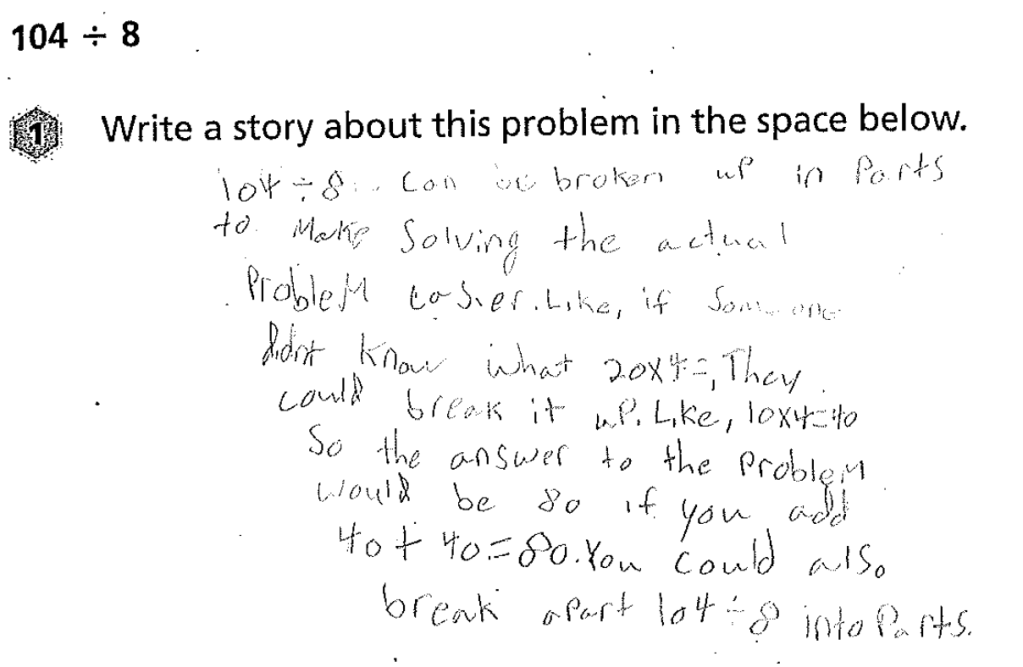 104 ÷ 8
1 Write a story about this problem in the space below.
104 ÷ 8 Can be broken up in Parts
to Make Solving the actual
Problem easier. Like, if Someone
didnt know what 20x4=, They
could break it up. Like, 10x4=40
So the answer to the Problem
would be 80 if you add
40 + 40 = 80. You could also
break apart 104 ÷ 8 into Parts.